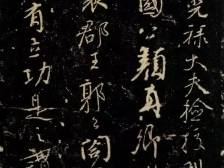 光祿大夫檢校
國公顏真卿
襄郡王郭公閤
有立功是之謂